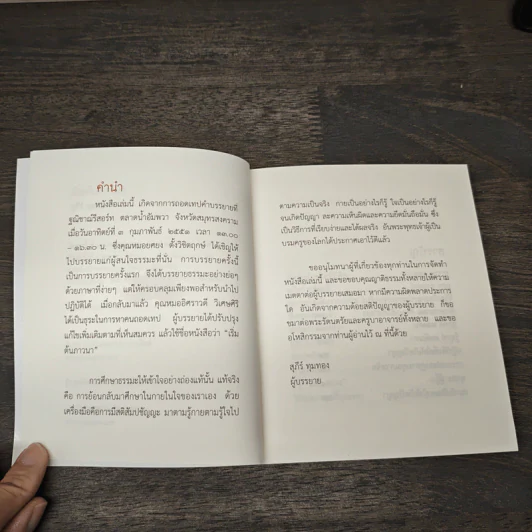 คำนำ
หนังสือเล่มนี้ เกิดจากการถอดเทปคำบรรยายที่
ฐณิชาณ์รีสอร์ท ตลาดน้ำอัมพวา จังหวัดสมุทรสงคราม
เมื่อวันอาทิตย์ที่ ๓ กุมภาพันธ์ ๒๕๕๑ เวลา ๑๓.๐๐
– ๑๖.๓๐ น. ซึ่งคุณหมอยศยง ตั้งรัชิตฤกษ์ ได้เชิญให้
ไปบรรยายแก่ผู้สนใจธรรมะที่นั่น การบรรยายครั้งนี้
เป็นการบรรยายครั้งแรก จึงได้บรรยายธรรมะอย่างย่อๆ
ด้วยภาษาที่ง่ายๆ แต่ให้ครอบคลุมเพียงพอสำหรับนำไป
ปฏิบัติได้ เมื่อกลับมาแล้ว คุณหมออิศราวดี วิเศษศิริ
ได้เป็นธุระในการหาคนถอดเทป ผู้บรรยายได้ปรับปรุง
แก้ไขเพิ่มเติมตามที่เห็นสมควร แล้วใช้ชื่อหนังสือว่า “เริ่ม
ต้นภาวนา”
การศึกษาธรรมะให้เข้าใจอย่างถ่องแท้นั้น แท้จริง
คือ การย้อนกลับมาศึกษาในกายในใจของเราเอง ด้วย
เครื่องมือคือการมีสติสัมปชัญญะ มาตามรู้กายตามรู้ใจไป
ตามความเป็นจริง กายเป็นอย่างไรก็รู้ ใจเป็นอย่างไรก็รู้
จนเกิดปัญญา ละความเห็นผิดและความยึดมั่นถือมั่น ซึ่ง
เป็นวิธีการที่เรียบง่ายและได้ผลจริง อันพระพุทธเจ้าผู้เป็น
บรมครูของโลกได้ประกาศเอาไว้ดีแล้ว
ขออนุโมทนาผู้ที่เกี่ยวข้องทุกท่านในการจัดทำ
หนังสือเล่มนี้ และขอขอบคุณญาติธรรมทั้งหลายให้ความ
เมตตาต่อผู้บรรยายเสมอมา หากมีความผิดพลาดประการ
ใด อันเกิดจากความด้อยสติปัญญาของผู้บรรยาย ก็ขอ
ขมาต่อพระรัตนตรัยและครูบาอาจารย์ทั้งหลาย และขอ
อโหสิกรรมจากท่านผู้อ่านไว้ ณ ที่นี้ด้วย
สุภีร์ ทุมทอง
ผู้บรรยาย